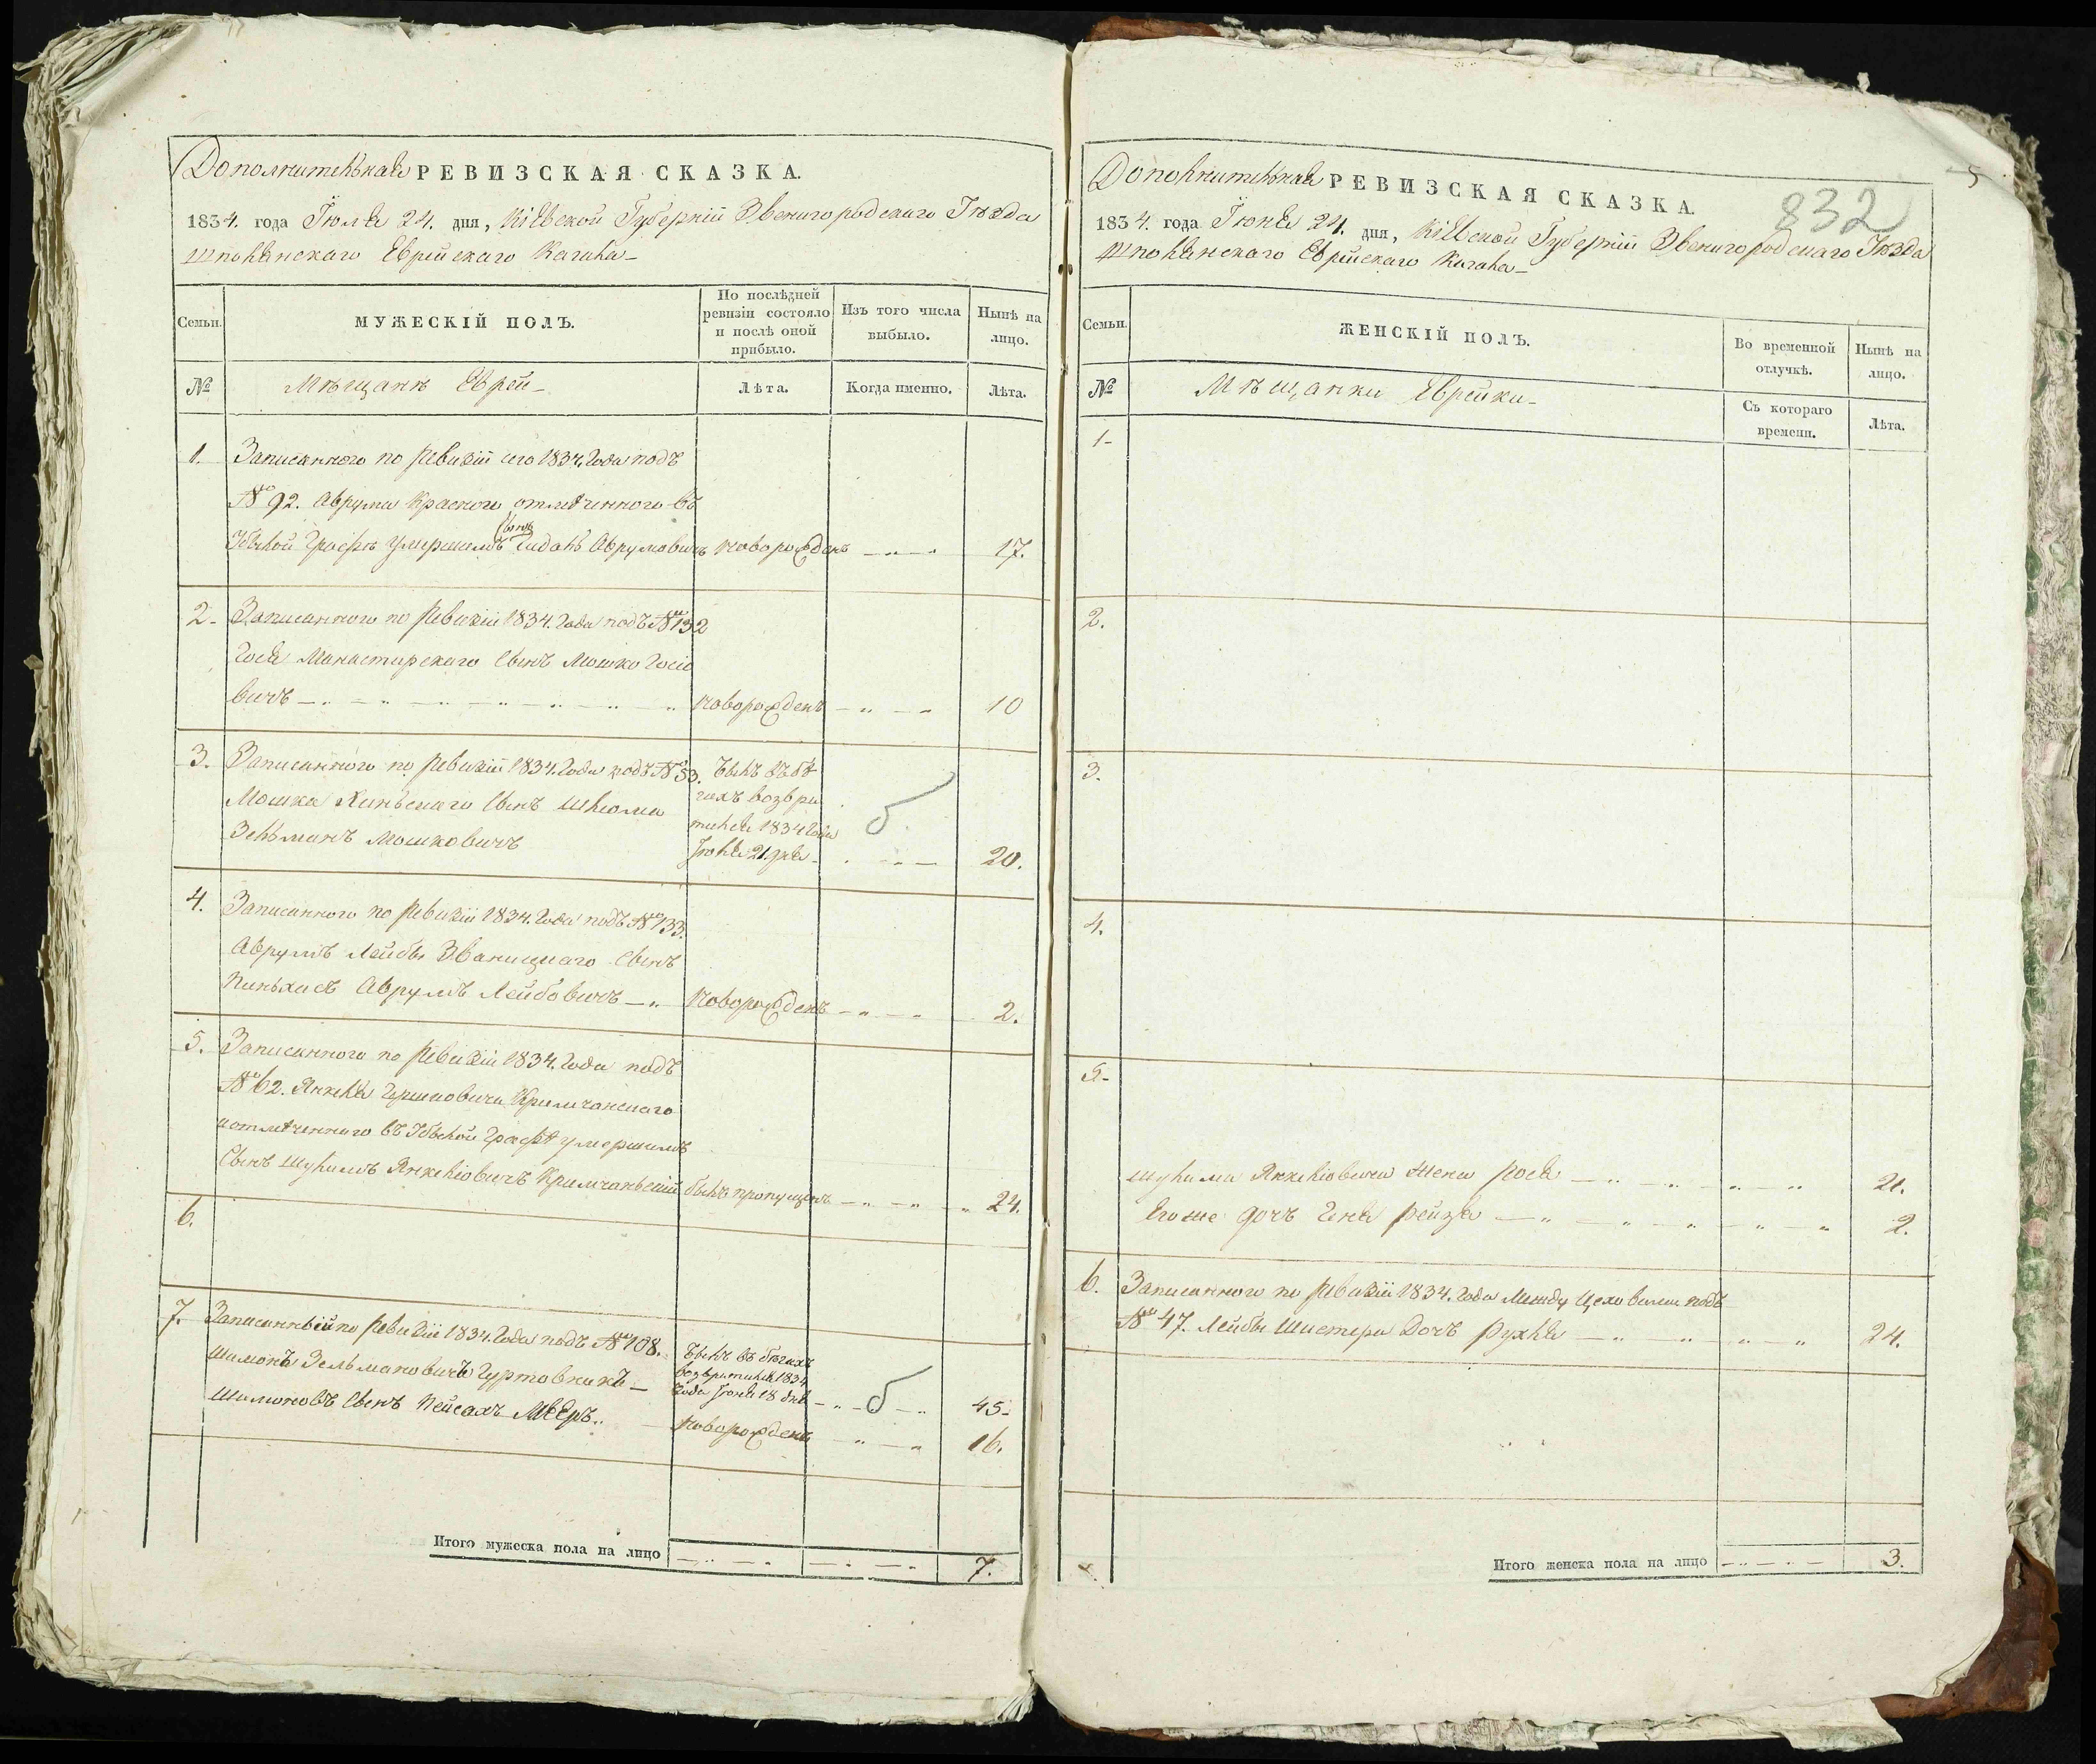 Дополнительная РЕВИЗСКАЯ СКАЗКА.
1834. года Іюля 24. дня, Кіевской Губерніи Звенигородскаго Уѣзда
Шполянскаго Еврейскаго Кагала
Семьи.
МУЖЕСКІЙ ПОЛЪ.
По послѣдней
ревизіи состояло
и послѣ оной
прибыло.
Изъ того числа
выбыло.
Нынѣ на
лицо.
№
Мѣщанѣ Еврей
Лѣта.
Когда именно.
Лѣта.
1. Записанного по ревизіи сего 1834. Года подъ
№ 92. Аврума Красного отмѣченного въ
убылой Графѣ умершимъ сынъ Аврумовичъ новорожденъ 17.
2. Записанного по Ревизіи 1834. Года подъ № 132
Іося Манастирскаго сынъ Мошко Іосіо
вичъ новорожденъ 10
3. Записанного по ревизіи 1834. Года подъ № 53. былъ въ бѣ
гахъ возвра
Мошка сынъ Шлiома
тился 1834 Года
Зельманъ Мошковичъ
21 дня 20.
б
4. Записанного по ревизіи 1834. Года подъ № 133.
Аврумъ Лейбы Званицкаго сынъ
Пинхасъ Аврумъ Лейбовичъ новорожденъ 2.
5. Записанного по ревизіи 1834. Года подъ
№ 62. Янкеля Гершковича Кримчанскаго
и отмѣченного въ убылой Графѣ умершимъ
Сынъ Шулимъ Янкеліовичъ Кримчанскій былъ пропущенъ 24.
6.
7. Записанный по ревизіи 1834. Года подъ № 108. былъ въ бѣгахъ
возвратился 1834
Шимонъ Зельмановичъ Гуртовникъ
Года Іюня 18 дня б 45.
Шимоновъ сынъ Пейсахъ Мееръ новорожденъ 16.
Итого мужеска пола на лицо 7.
5
832
Дополнительная РЕВИЗСКАЯ СКАЗКА.
1834. года Іюня 24. дня, Кіевской Губерніи Звенигородскаго Уѣзда
Шполянскаго Еврейскаго Кагала
Семьи.
ЖЕНСКІЙ ПОЛЪ.
Во временной
отлучкѣ.
Нынѣ на
лицо.
№
Мѣщанки Еврейки
Съ котораго
времени.
Лѣта.
1
2.
3.
4.
5
Шулима Янкеліовича жена Рося 21.
Его же дочъ Рейзя 2.
6. Записанного по ревизіи 1834. Года между Цеховыми подъ
№ 47. Лейбы Шистера Дочъ Рухля 24.
Итого женска пола на лицо 3.